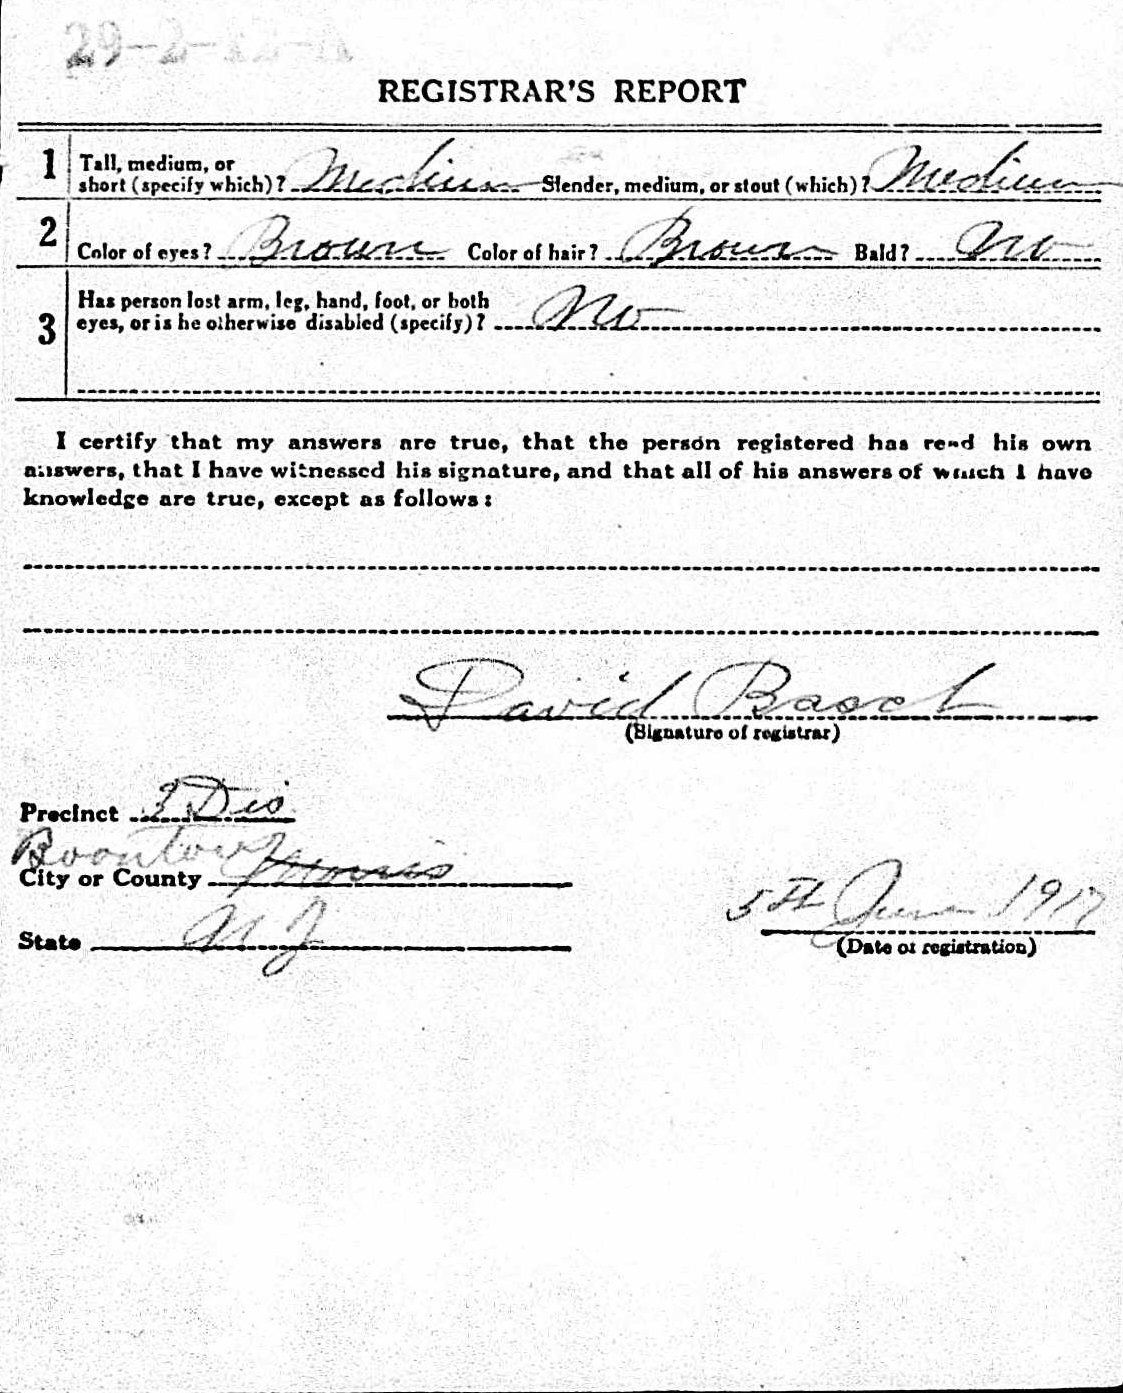 29-2-22-A
REGISTRAR'S REPORT
1 Tall, medium, or
short (specify which)? Medium Slender, medium, or stout (which)? Medium
2 Color of eyes? Brown Color of hair? Brown Bald? No
3 Has person lost arm, leg, hand, foot, or both
eyes, or is he otherwise disabled (specify)? No
I certify that my answers are true, that the person registered has read his own
answers, that I have witnessed his signature, and that all of his answers of which I have
knowledge are true, except as follows:
David Basch
(Signature of registrar)
Precinct 3 Dis
Boonton
City or County Morris
State N J
5th June 1917
(Date of registration)